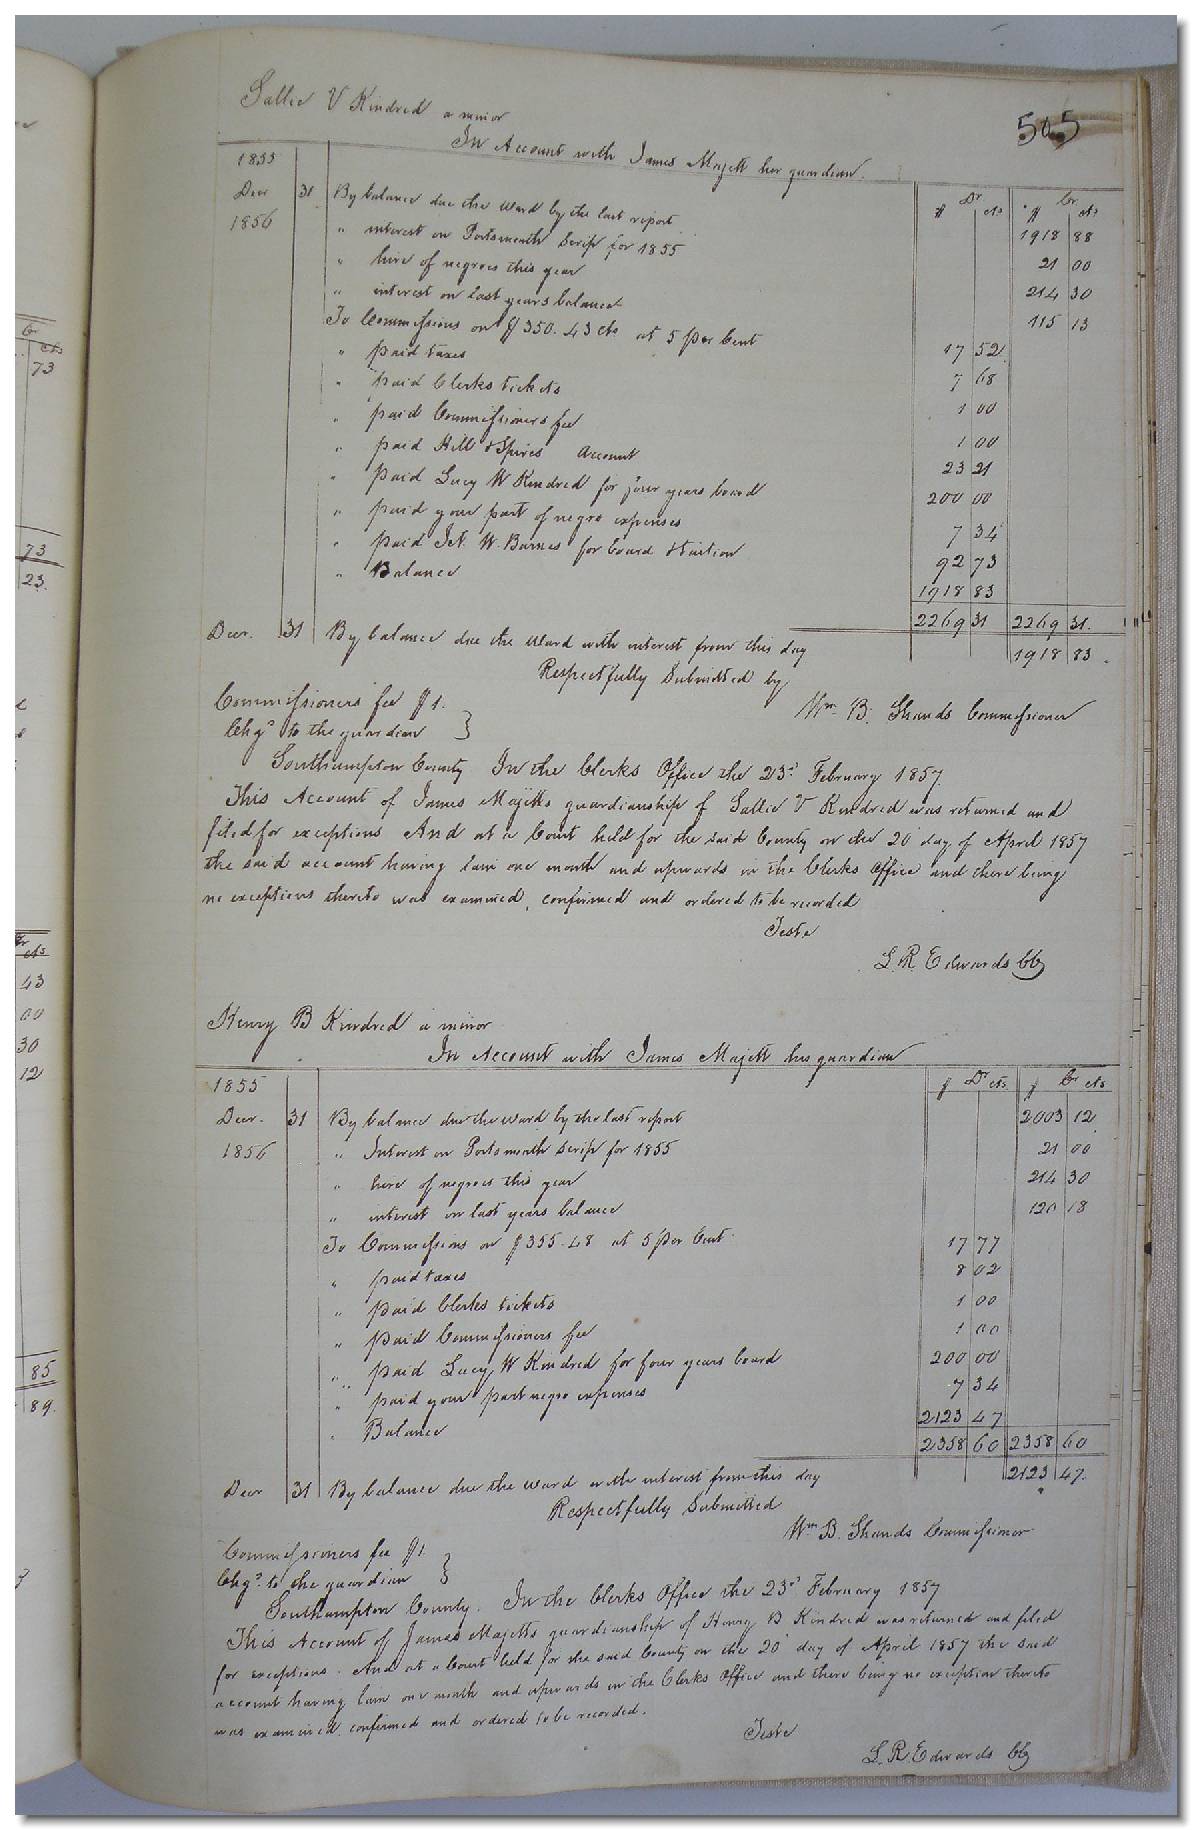 505
Sallie V Kindred a minor
In Account with James Majett her guardian.
Dr Cr
$ cts $ cts
1855
Decr 31 By balance due the Ward by the last report 1918 88
1856 " interest on Portsmouth Scrip for 1855 21 00
" hire of negroes this year 214 30
" interest on last years balance 115 13
To Commissions on $350.43 cts at 5 per Cent 17 52
" paid taxes 7 68
" paid Clerks tickets 1 00
" paid Commissioners fee 1 00
" paid Hill & Spires Account 23 21
" paid Lucy W Kindred for four years board 200 00
" paid your part of negro expenses 7 34
" paid Jt. W. Barnes for board & tuition 92 73
" Balance 1918 83
2269 31 2269 31.
Decr. 31 By balance due the Ward with interest from this day 1918 83.
Respectfully Submitted by
Wm. B. Shands Commissioner
Commissioners fee $1.
Chgd to the guardian }
Southampton County In the Clerks Office the 23d February 1857.
This Account of James Majetts guardianship of Sallie V Kindred was returned and
filed for exceptions And at a Court held for the said County on the 20 day of April 1857
the said account having lain one month and upwards in the Clerks Office and there being
no exceptions thereto was examined, confirmed and ordered to be recorded
Teste
L. R. Edwards CC
Henry B Kindred a minor
In Account with James Majett his guardian
$ Dr cts $ Cr cts
1855
Decr. 31 By balance due the Ward by the last report 2003 12
1856 " Interest on Portsmouth Scrip for 1855 21 00
" hire of negroes this year 214 30
" interest on last years balance 120 18
To Commissions on $355.48 at 5 per Cent 17 77
" paid taxes 8 02
" paid Clerks tickets 1 00
" paid Commissioners fee 1 00
" paid Lucy W Kindred for four years board 200 00
" paid your part negro expenses 7 34
" Balance 2123 47
2358 60 2358 60
Decr 31 By balance due the Ward with interest from this day 2123 47.
Respectfully Submitted
Wm B. Shands Commissioner
Commissioners fee $1.
Chgd. to the guardian }
Southampton County. In the Clerks Office the 23d February 1857
This Account of James Majetts guardianship of Henry B Kindred was returned and filed
for exceptions. And at a Court held for the said County on the 20 day of April 1857 the said
account having lain one month and upwards in the Clerks Office and there being no exception thereto
was examined, confirmed and ordered to be recorded.
Teste
L. R. Edwards CC
Cr
cts
73
73
23.
Cr
cts
43
00
30
12
85
89.